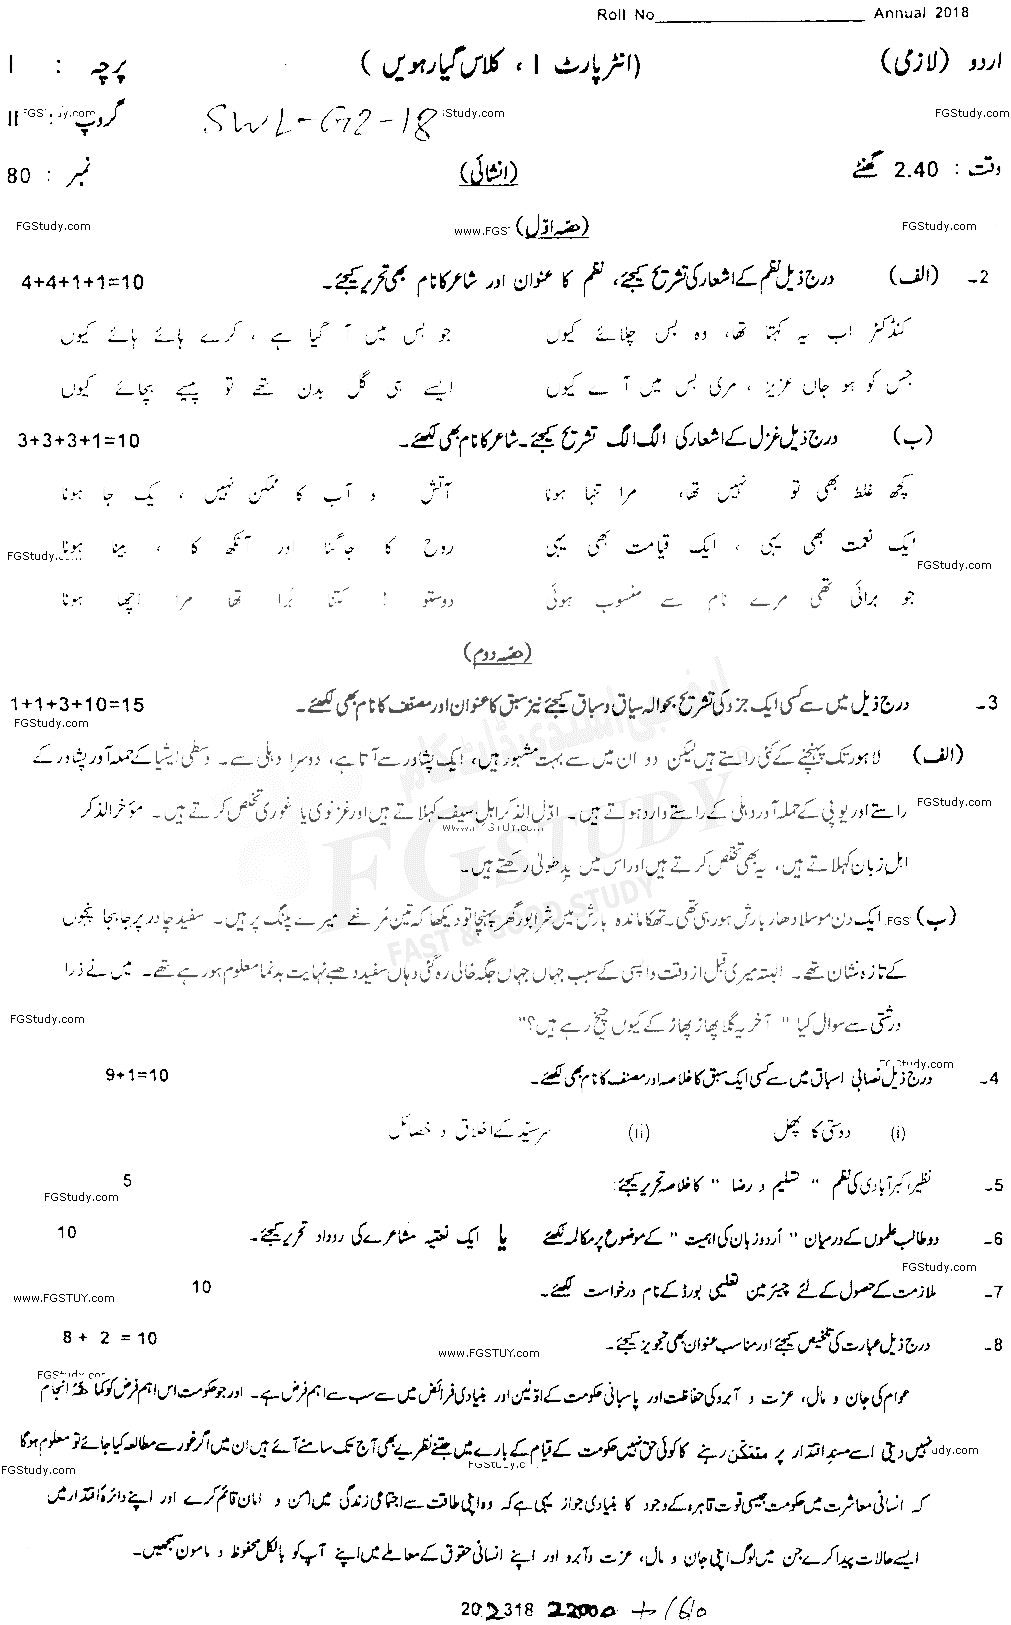 Roll No____________________ Annual 2018
اردو (لازمی) (انٹر پارٹ I ، کلاس گیارھویں) پرچہ : I
FGStudy.com FGStudy.com SWL-G2-18 گروپ : II
وقت : 2.40 گھنٹے (انشائی) نمبر : 80
FGStudy.com (حصہ اوّل) www.FGS FGStudy.com
2۔ (الف) درج ذیل نظم کے اشعار کی تشریح کیجئے، نظم کا عنوان اور شاعر کا نام بھی تحریر کیجئے۔ 4+4+1+1=10
کنڈکٹر اب یہ کہتا تھا، وہ بس چلائے کیوں جو بس میں آ گیا ہے ، کرے ہائے ہائے کیوں
جس کو ہو جاں عزیز ، مری بس میں آئے کیوں ایسے ہی گل بدن تھے تو پیسے بچائے کیوں
(ب) درج ذیل غزل کے اشعار کی الگ الگ تشریح کیجئے۔ شاعر کا نام بھی لکھئے۔ 3+3+3+1=10
کچھ غلط بھی تو نہیں تھا، مرا تنہا ہونا آتش و آب کا ممکن نہیں ، یک جا ہونا
ایک نعمت بھی یہی ، ایک قیامت بھی یہی روح کا جاگنا اور آنکھ کا ، بینا ہونا
FGStudy.com FGStudy.com
جو برائی تھی مرے نام سے منسوب ہوئی دوستو ! کتنا بُرا تھا مرا اچھا ہونا
(حصہ دوم)
3۔ درج ذیل میں سے کسی ایک جزو کی تشریح بحوالہ سیاق و سباق کیجئے نیز سبق کا عنوان اور مصنف کا نام بھی لکھئے۔ 1+1+3+10=15
FGStudy.com
(الف) لاہور تک پہنچنے کے کئی راستے ہیں لیکن دو ان میں سے بہت مشہور ہیں، ایک پشاور سے آتا ہے، دوسرا دہلی سے۔ وسطی ایشیا کے حملہ آور پشاور کے
راستے اور یو پی کے حملہ آور دہلی کے راستے وارد ہوتے ہیں۔ اوّل الذکر اہل سیف کہلاتے ہیں اور غزنوی یا غوری تخلص کرتے ہیں۔ مؤخر الذکر
FGStudy.com
اہل زبان کہلاتے ہیں، یہ بھی تخلص کرتے ہیں اور اس میں یدِ طولٰی رکھتے ہیں۔
FGSTUDY
FAST & GOOD STUDY
(ب) ایک دن موسلا دھار بارش ہو رہی تھی۔ تھکا ماندہ بارش میں شرابور گھر پہنچا تو دیکھا کہ تین مرغے میرے پلنگ پر ہیں۔ سفید چادر پر جا بجا پنجوں
کے تازہ نشان تھے۔ البتہ میری قبل از وقت واپسی کے سبب جہاں جہاں جگہ خالی رہ گئی وہاں سفید دھبے نہایت بدنما معلوم ہو رہے تھے۔ میں نے ذرا
درشتی سے سوال کیا " آخر یہ گلا پھاڑ پھاڑ کے کیوں چیخ رہے ہیں؟"
FGStudy.com
4۔ درج ذیل نصابی اسباق میں سے کسی ایک سبق کا خلاصہ اور مصنف کا نام بھی لکھئے۔ 9+1=10
(i) دوستی کا پھل (ii) سرسیّد کے اخلاق و خصائل
5۔ نظیر اکبر آبادی کی نظم " تسلیم و رضا " کا خلاصہ تحریر کیجئے: 5
FGStudy.com
6۔ دو طالب علموں کے درمیان " اُردو زبان کی اہمیت " کے موضوع پر مکالمہ لکھئے یا ایک نعتیہ مشاعرے کی روداد تحریر کیجئے۔ 10
FGStudy.com
7۔ ملازمت کے حصول کے لئے چیئرمین تعلیمی بورڈ کے نام درخواست لکھئے۔ 10
www.FGSTUY.com
8۔ درج ذیل عبارت کی تلخیص کیجئے اور مناسب عنوان بھی تجویز کیجئے۔ 8+ 2 = 10
www.FGSTUY.com
عوام کی جان و مال، عزت و آبرو کی حفاظت اور پاسبانی حکومت کے اوّلین اور بنیادی فرائض میں سے سب سے اہم فرض ہے۔ اور جو حکومت اس اہم فرض کو کما حقہٗ انجام
نہیں دیتی اسے مسندِ اقتدار پر متمکن رہنے کا کوئی حق نہیں حکومت کے قیام کے بارے میں جتنے نظریے بھی آج تک سامنے آئے ہیں اُن میں اگر غور سے مطالعہ کیا جائے تو معلوم ہوگا
FGStudy.com
کہ انسانی معاشرت میں حکومت جیسی قوت قاہرہ کے وجود کا بنیادی جواز یہی ہے کہ وہ اپنی طاقت سے اجتماعی زندگی میں امن و امان قائم کرے اور اپنے دائرہ اقتدار میں
ایسے حالات پیدا کرے جن میں لوگ اپنی جان و مال، عزت و آبرو اور اپنے انسانی حقوق کے معاملے میں اپنے آپ کو بالکل محفوظ و مامون سمجھیں۔
202318 22000 +160